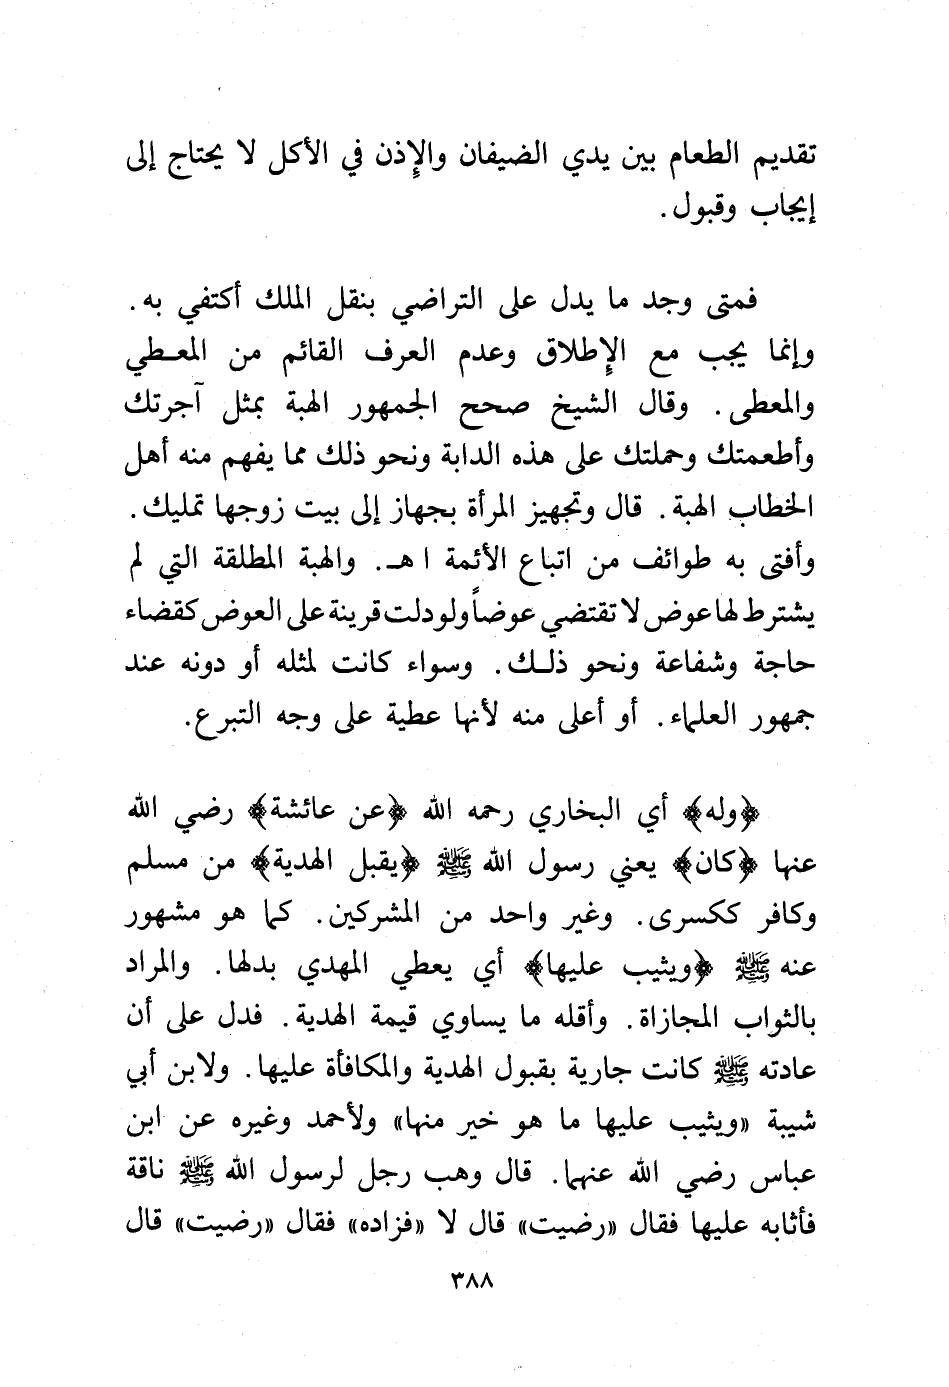 تقديم الطعام بين يدي الضيفان والإِذن في الأكل لا يحتاج إلى
إيجاب وقبول.
فمتى وجد ما يدل على التراضي بنقل الملك أكتفي به.
وإنما يجب مع الإِطلاق وعدم العرف القائم من المعـطي
والمعطى. وقال الشيخ صحح الجمهور الهبة بمثل آجرتك
وأطعمتك وحملتك على هذه الدابة ونحو ذلك مما يفهم منه أهل
الخطاب الهبة. قال وتجهيز المرأة بجهاز إلى بيت زوجها تمليك.
وأفتى به طوائف من اتباع الأئمة ا هـ. والهبة المطلقة التي لم
يشترط لها عوض لا تقتضي عوضاً ولو دلت قرينة على العوض كقضاء
حاجة وشفاعة ونحو ذلـك. وسواء كانت لمثله أو دونه عند
جمهور العلماء. أو أعلى منه لأنها عطية على وجه التبرع.
﴿وله﴾ أي البخاري رحمه الله ﴿عن عائشة﴾ رضي الله
عنها ﴿كان﴾ يعني رسول الله ﷺ ﴿يقبل الهدية﴾ من مسلم
وكافر ككسرى. وغير واحد من المشركين. كما هو مشهور
عنه ﷺ ﴿ويثيب عليها﴾ أي يعطي المهدي بدلها. والمراد
بالثواب المجازاة. وأقله ما يساوي قيمة الهدية. فدل على أن
عادته ﷺ كانت جارية بقبول الهدية والمكافأة عليها. ولابن أبي
شيبة «ويثيب عليها ما هو خير منها» ولأحمد وغيره عن ابن
عباس رضي الله عنهما. قال وهب رجل لرسول الله ﷺ ناقة
فأثابه عليها فقال «رضيت» قال لا «فزاده» فقال «رضيت» قال
٣٨٨